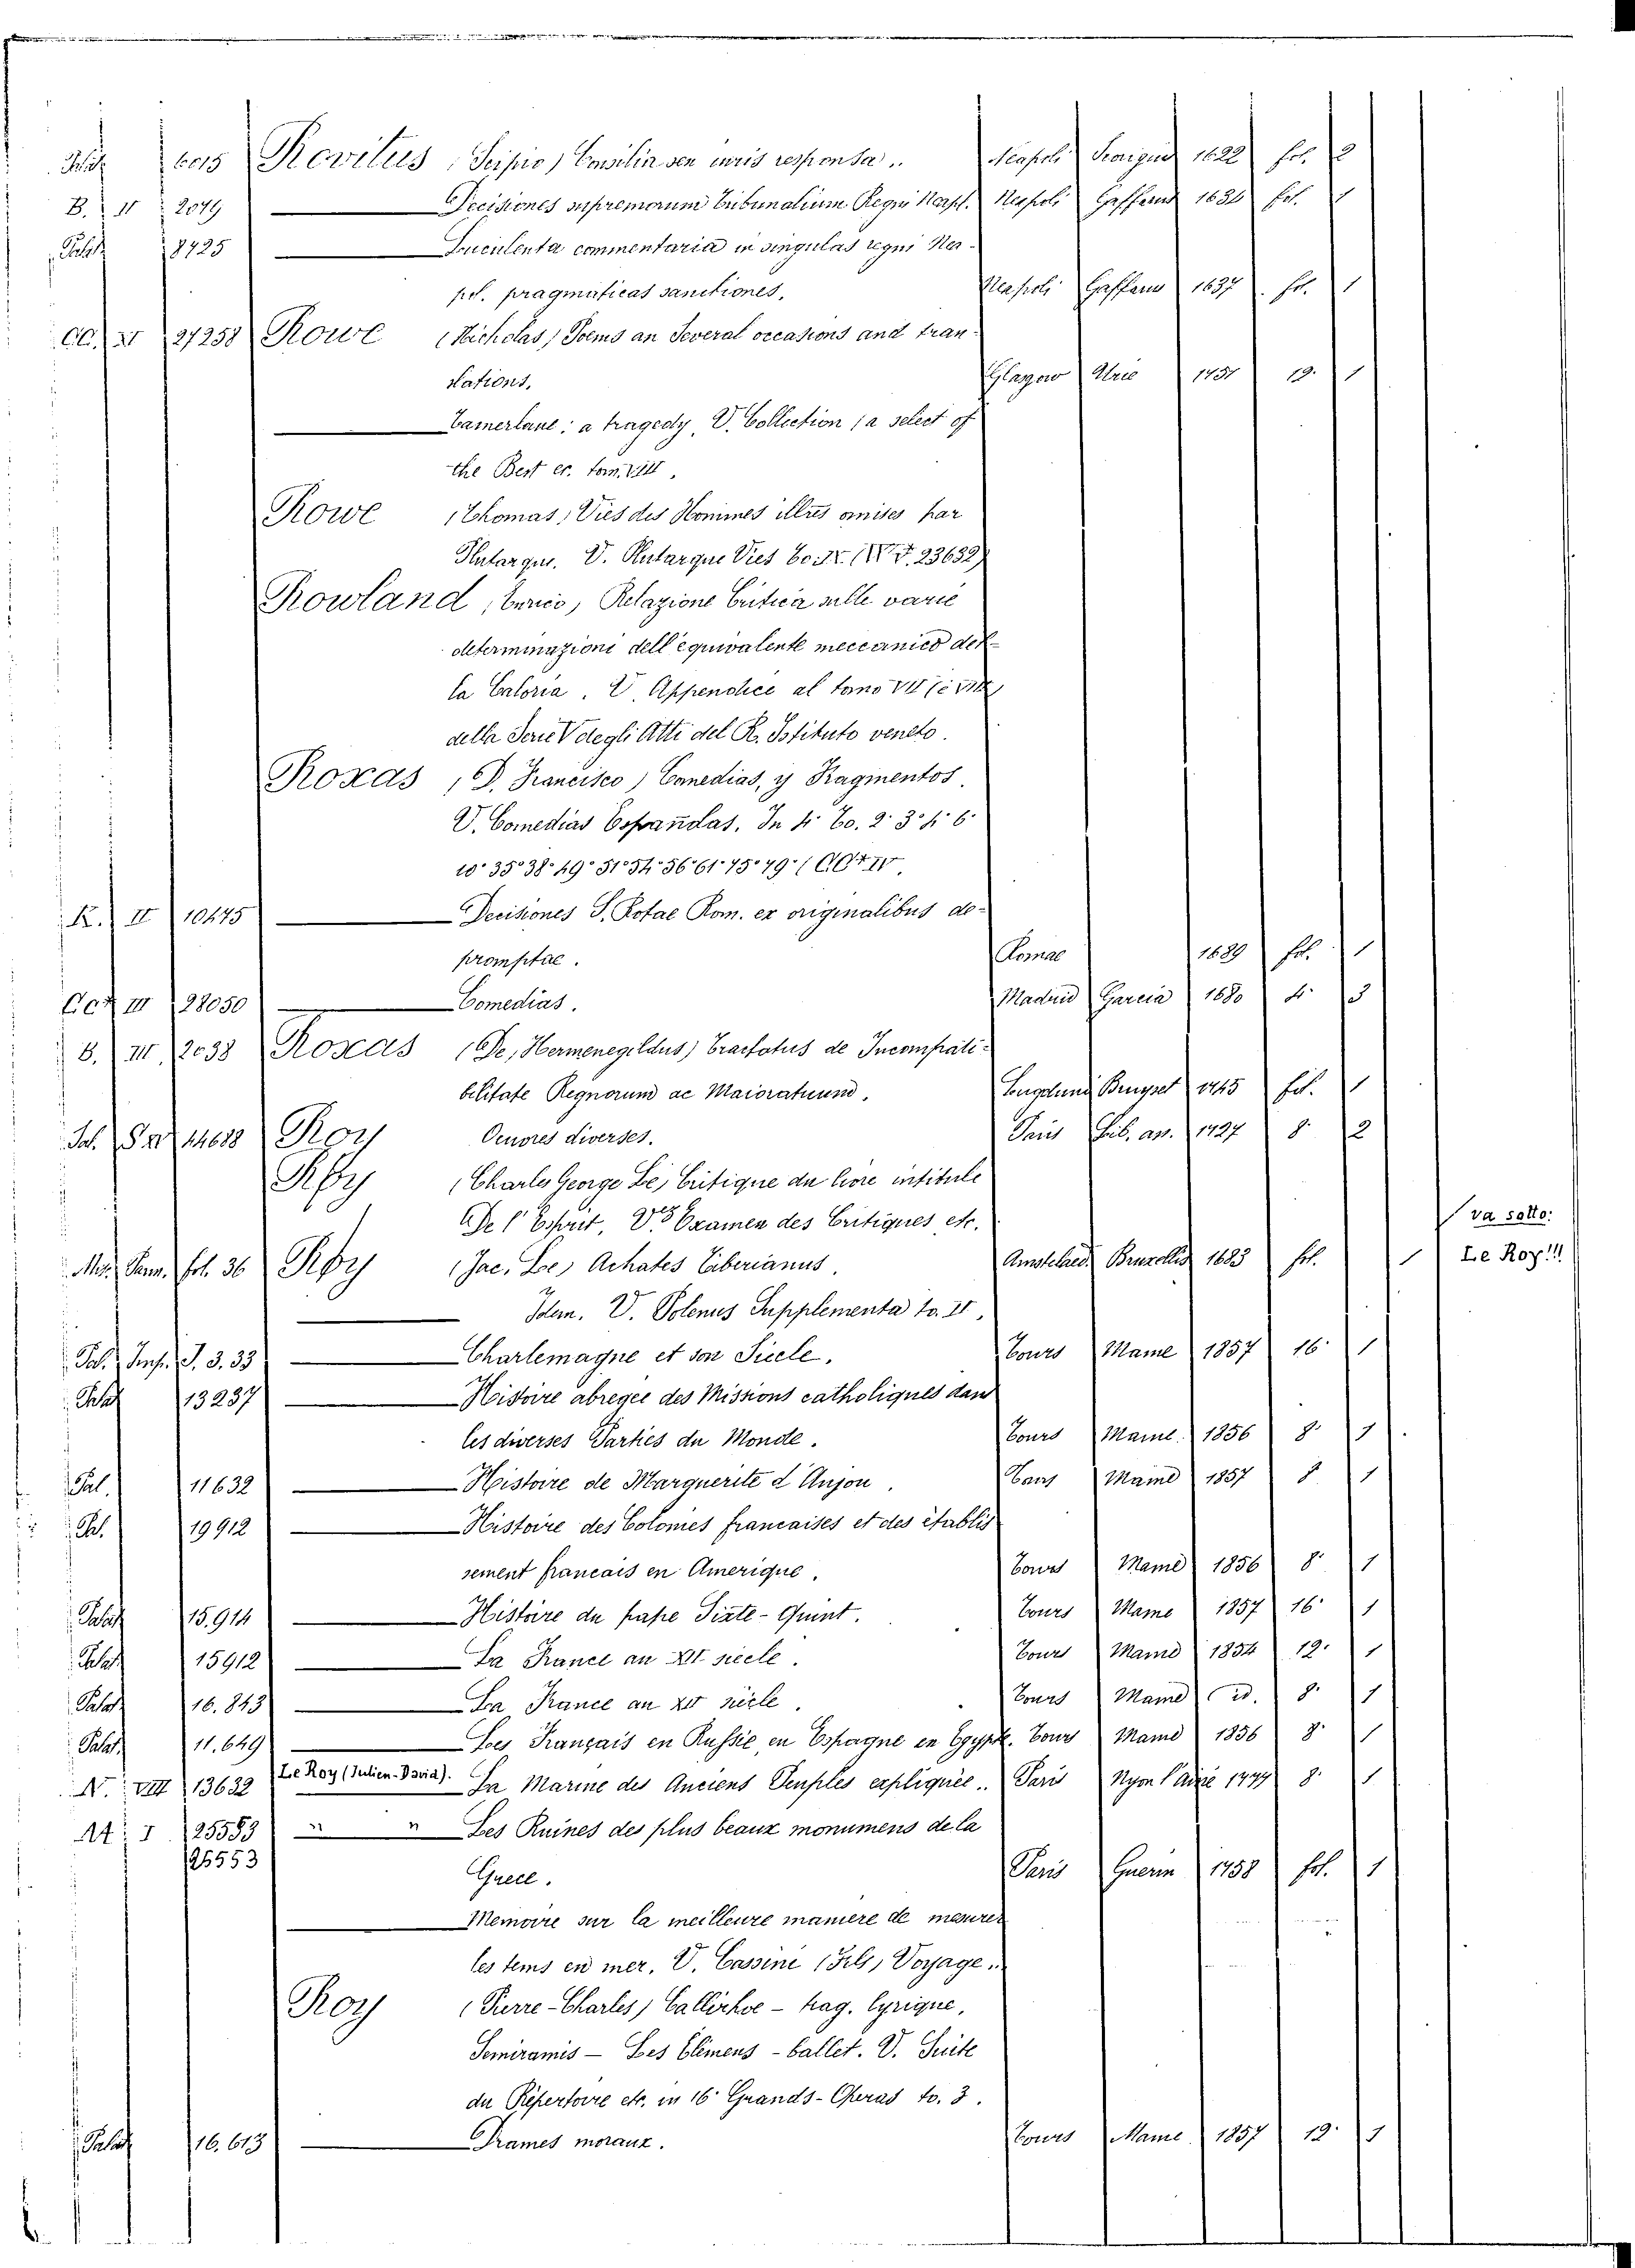 6015 Rovitus (Scipio) Consilia seu iuris responsa.. Neapoli 1622 fol. 2
B. II 2079 Decisiones supremorum Tribunalium Regni Neapl. Neapoli Gaffarus 1631 fol. 1
Palat. 8425 Luculenta commentaria in singulas regni Nea-
pol. pragmaticas sanctiones, Neapoli Gaffarus 1637 fol. 1
CC. XI 27258 Rowe (Nicholas) Poems an Several occasions and tran-
slations, Glasgow Urie 1751 12. 1
Tamerlane: a tragedy, V. Collection (a select of
the Best ec. tom. VIII.
Rowe (Thomas) Vies des Hommes illres omises par
Plutarque. V. Plutarque Vies To. IX. 23632)
Rowland (Enrico) Relazione Critica sulle varie
determinazioni dell'equivalente meccanico del-
la Caloria. V. Appendice al tomo VII (e VIII)
della Serie V degli Atti del R. Istituto veneto.
Roxas (D. Francisco) Comedias, y Fragmentos.
V. Comedias Españolas. In 4º To. 2º 3º 4º 6º
10º 35º 38º 49º 51º 54º 56º 61º 75º 79º
K. II 10475 Decisiones S. Rotae Rom. ex originalibus de-
promptae. Romae 1689 fol. 1
28050 Comedias. Madrid Garcia 1680 4º 3
B. III 2038 Roxas (De, Hermenegildus) Tractatus de Incompati-
bilitate Regnorum ac Maioratuum. Lugduni Bruyset 1745 fol. 1
14688 Roy Oeuvres diverses. Paris Lib. as. 1727 8º 2
Roy (Charles George Le) Critique du livre intitule
De l'Esprit, V. Examen des Critiques etc.
va sotto:
fol. 36 Roy (Jac. Le) Achates Tiberianus. Amstelaed. Bruxellis 1683 fol. 1 Le Roy!!!
Idem. V. Polenus Supplementa to. II.
Pal. Imp. J. 3. 33 Charlemagne et son Siecle. Tours Mame 1857 16º 1
Palat 13237 Histoire abregee des Missions catholiques dans
les diverses Parties du Monde. Tours Mame 1856 8º 1
Pal. 11632 Histoire de Marguerite d'Anjou. Tours Mame 1857 8 1
Pal. 19912 Histoire des Colonies francaises et des établis
sement francais en Amerique. Tours Mame 1856 8º 1
Palat 15.914 Histoire du pape Sixte-Quint. Tours Mame 1857 16º 1
Palat 15912 La France au XII siecle. Tours Mame 1854 12º 1
Palat 16.843 La France au siècle. Tours Mame id. 8º 1
Palat. 11.649 Les Français en Russie, en Espagne en Egypte. Tours Mame 1856 8º 1
N. VIII 13632 Le Roy (Julien-David). La Marine des Anciens Peuples expliquée.. Paris Nyon l'ainé 1777 8º 1
At I 25553 " " Les Ruines des plus beaux monumens de la
25553 Grece. Paris Guerin 1758 fol. 1
Memoire sur la meilleure maniere de mesurer
les tems en mer. V. Cassini (Fils) Voyage..
Roy (Pierre-Charles) Callirhoe - trag. lyrique,
Semiramis - Les Elémens - ballet. V. Suite
du Répertoire etc. in 16º Grands-Operas to. 3.
Palat 16.613 Drames moraux. Tours Mame 1857 12º 1